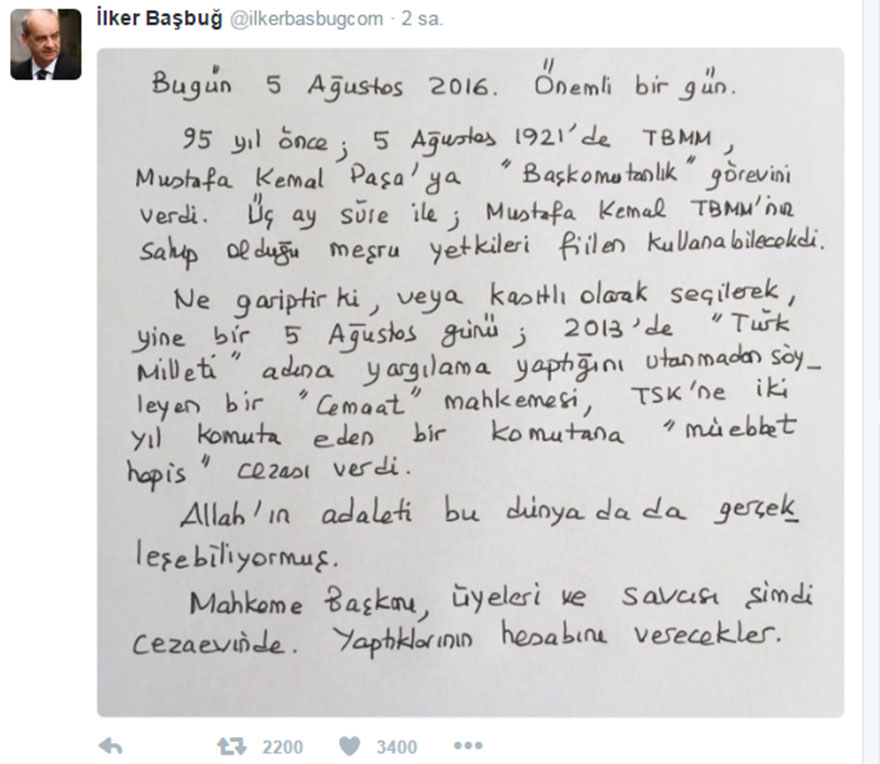 İlker Başbuğ @ilkerbasbugcom · 2 sa.
Bugün 5 Ağustos 2016. Önemli bir gün.
95 yıl önce; 5 Ağustos 1921'de TBMM,
Mustafa Kemal Paşa'ya "Başkomutanlık" görevini
verdi. Üç ay süre ile; Mustafa Kemal TBMM'nin
sahip olduğu meşru yetkileri fiilen kullanabilecekdi.
Ne gariptir ki, veya kasıtlı olarak seçilerek,
yine bir 5 Ağustos günü; 2013'de "Türk
Milleti" adına yargılama yaptığını utanmadan söy_
leyen bir "Cemaat" mahkemesi, TSK'ne iki
yıl komuta eden bir komutana "müebbet
hapis" cezası verdi.
Allah'ın adaleti bu dünyada da gerçek_
leşebiliyormuş.
Mahkeme Başkanı, üyeleri ve savcısı şimdi
cezaevinde. Yaptıklarının hesabını verecekler.
2200 3400